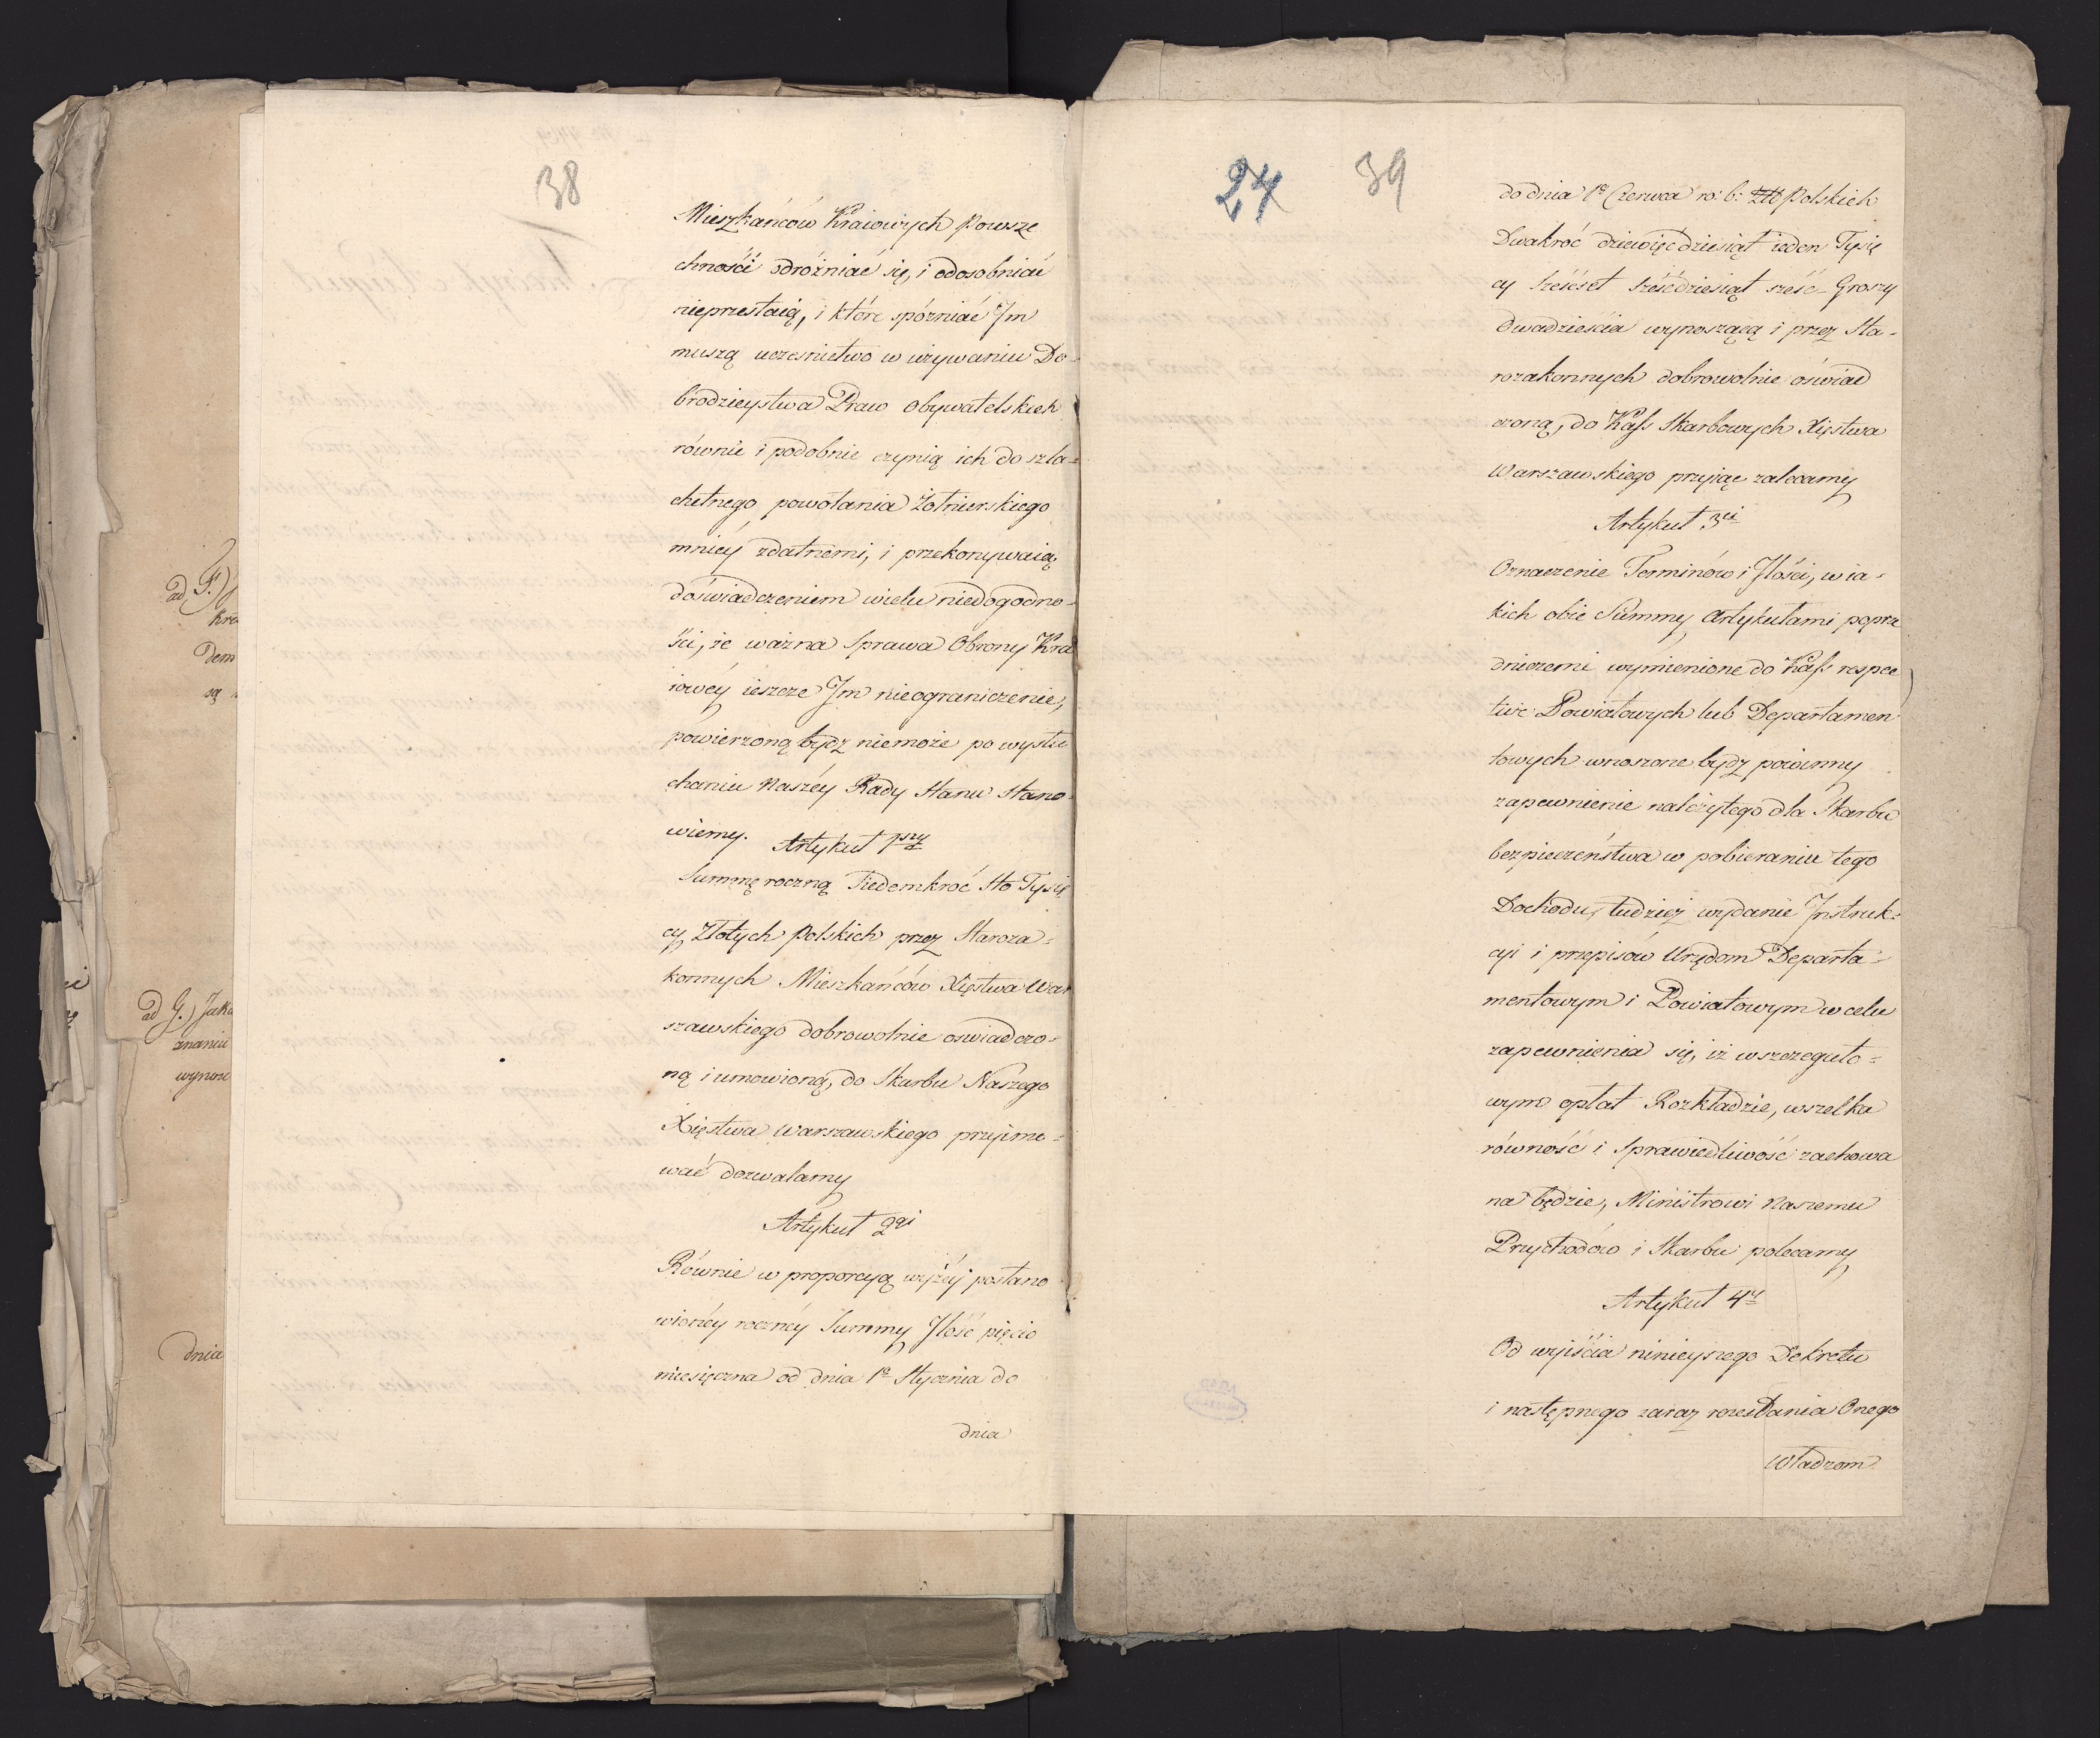 38
Mieszkańców Kraiowych Powsze
chności odróżniać się, i odosobniać
nieprzestaią, i które spóźniać Im
muszą uczesnictwo w używaniu Do-
brodzieystwa Praw Obywatelskich
równie i podobnie czynią ich do szla-
chetnego powołania Żołnierskiego
mniey zdatnemi, i przekonywaią
doświadczeniem wielu niedogodno-
ści, że ważna Sprawa Obrony Kra
iowéy ieszcze Im nieograniczenie,
powierzoną bydz niemoże po wysłu
chaniu Naszéy Rady Stanu Stano-
wiemy. Artykuł 1szy
Summę roczną Siedemkroć Sto Tysię
cy Złotych Polskich przez Staroza-
konnych Mieszkańców Xięstwa War
szawskiego dobrowolnie oswiadczo-
ną i umowioną, do Skarbu Naszego
Xięstwa Warszawskiego przyimo-
wać dozwalamy
Artykuł 2gi
Równie w proporcyą wyżéy postano
wionéy rocznéy Summy Ilość pięcio
miesięczna od dnia 1o Stycznia do
dnia
ad F.)
kra
dem
są
ad G.) Jako
znaniu
wynosi
dnia
24
39
do dnia 1o Czerwca ro: b: Polskich
Dwakroć dziewięćdziesiąt ieden Tysię
cy Sześćset Sześćdziesiąt sześć - Groszy
dwadzieścia wynoszącą i przez Sta-
rozakonnych dobrowolnie óświad
czoną, do Kass Skarbowych Xięstwa
Warszawskiego przyiąc zalecamy
Artykuł 3ci
Oznaczenie Terminów i Ilości, w ia-
kich obie Summy Artykułami poprze
dniczemi wymienione do Kass respec
tive Powiatowych lub Departamen
towych wnoszone bydz powinny
zapewnienie należytego dla Skarbu
bezpieczeństwa w pobieraniu tego
Dochodu, tudzież wydanie Instruk-
cyi i przepisów Urzędom Departa-
mentowym i Powiatowym w celu
zapewnienia się, iż w szczegóło-
wym opłat Rozkładzie, wszelka
równość i Sprawiedliwość zachowa
na będzie, Ministrowi Naszemu
Przychodów i Skarbu polecamy
Artykuł 4y
Od wyiścia ninieyszego Dekretu
i następnego zaraz rozesłania Onego
Władzom